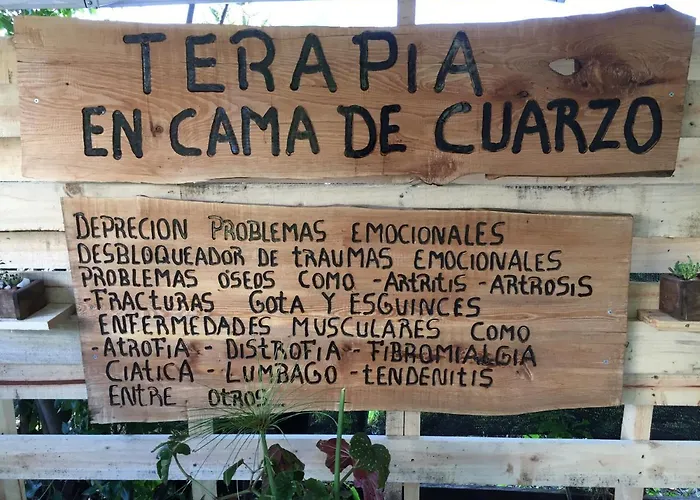 TERAPIA
EN CAMA DE CUARZO
DEPRECION PROBLEMAS EMOCIONALES
DESBLOQUEADOR DE TRAUMAS EMOCIONALES
PROBLEMAS OSEOS COMO -ARTRITIS -ARTROSIS
-FRACTURAS GOTA Y ESGUINCES
ENFERMEDADES MUSCULARES COMO
-ATROFIA - DISTROFIA - FIBROMIALGIA
CIATICA - LUMBAGO -TENDENITIS
ENTRE OTROS...